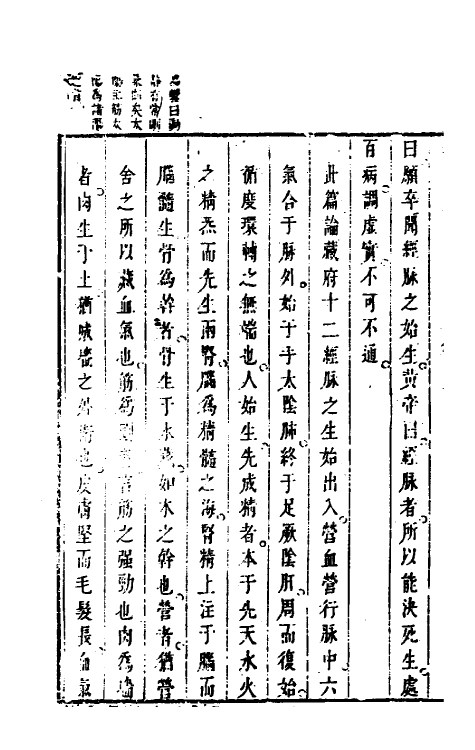 曰願卒聞經脉之始生黃帝曰經脉者所以能決死生處
百病調虛實不可不通
此篇論藏府十二經脉之生始出入營血營行脉中六
氣合于脉外始于手太陰肺終于足厥陰肝周而復始
循度環轉之無端也人始生先成精者本于先天水火
之精炁而先生兩腎腦爲精髓之海腎精上注于腦而
腦髓生骨爲幹者骨生于水藏如木之幹也營者猶營
舍之所以藏血氣也筋爲剛者言筋之强勁也肉爲墻
者肉生于土猶城墻之外衛也皮膚堅而毛髮長血氣